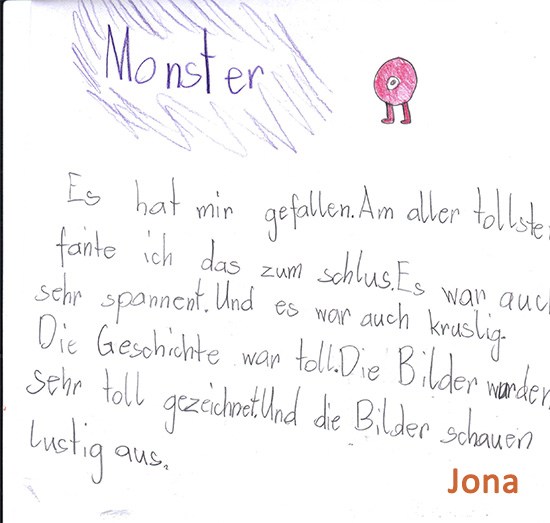 Monster
Es hat mir gefallen. Am aller tollste
fante ich das zum schlus. Es war auch
sehr spannent. Und es war auch kruslig.
Die Geschichte war toll. Die Bilder wurden
sehr toll gezeichnet. Und die Bilder schauen
lustig aus.
Jona